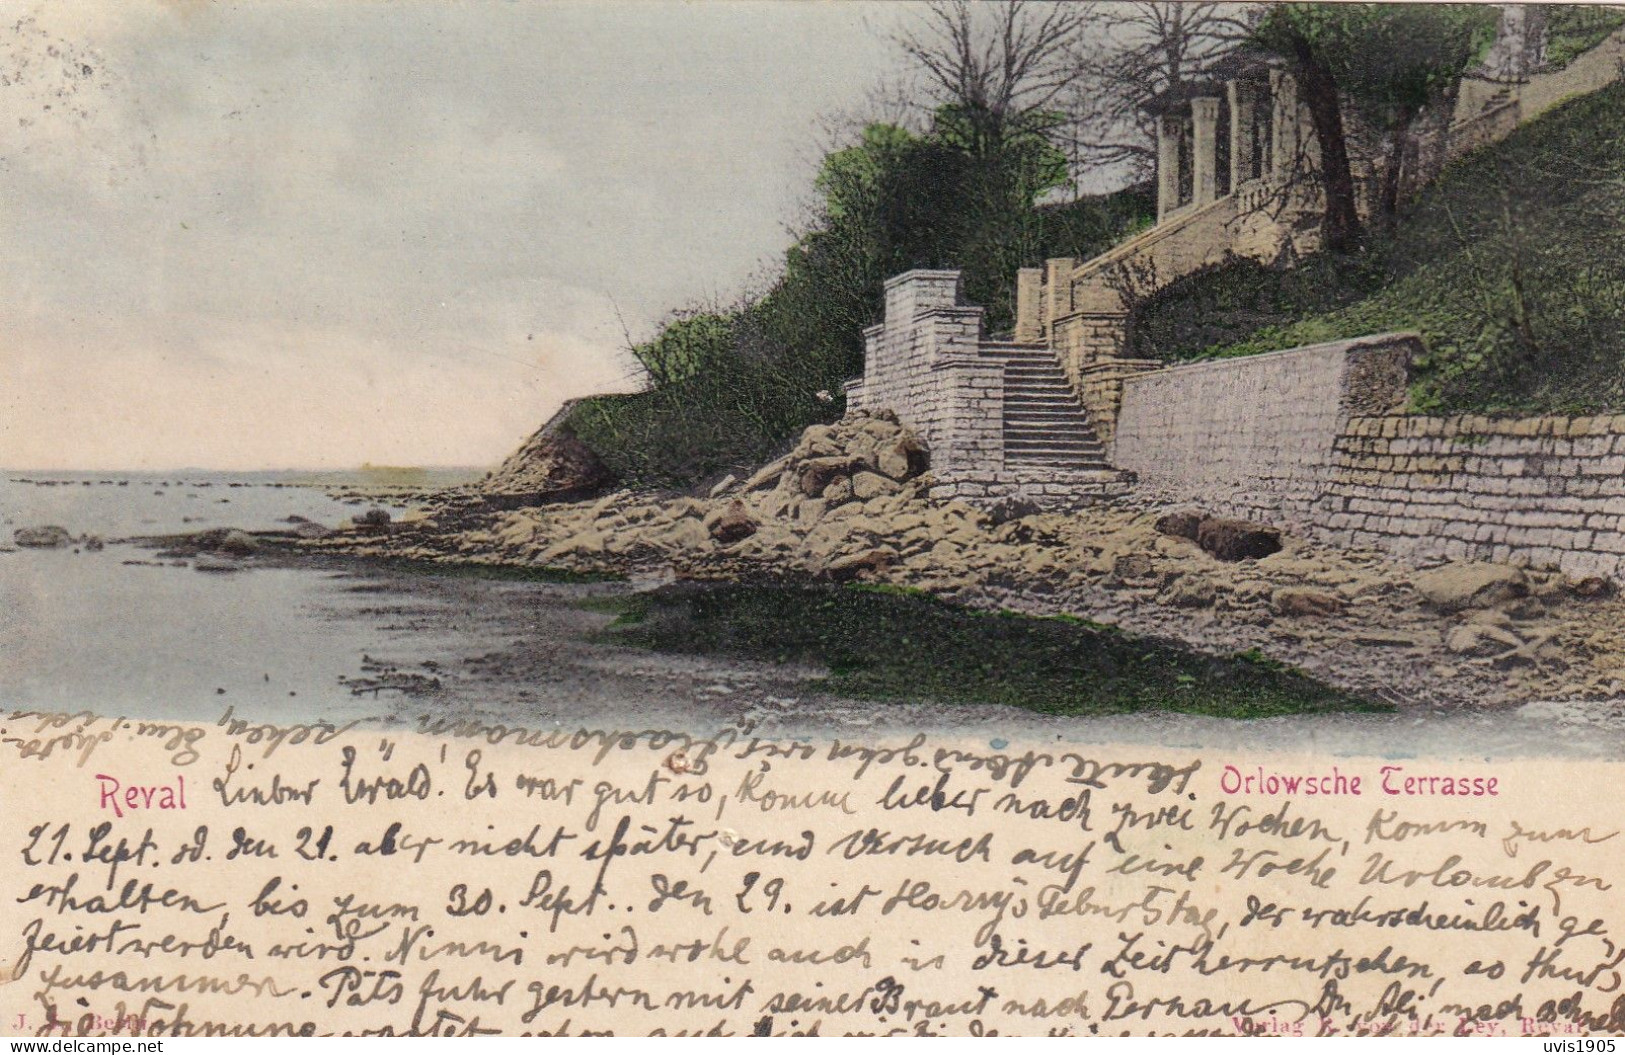 Heute Abend gehn wir „Flachsmann" sehen,
Reval
Orlowsche Terrasse
Lieber Ewald! Es war gut so, komm lieber nach zwei Wochen, komm zum
21. Sept. od. den 21. aber nicht später, und versuch auf eine Woche Urlaub zu
erhalten, bis zum 30. Sept.. Den 29. ist Harry's Geburtstag, der wahrscheinlich ge-
feiert werden wird. Ninni wird wohl auch in dieser Zeit herrutschen, so thut's
zusammen. Päts fuhr gestern mit seiner Braut nach Pernau. Du,
die Wohnung wartet schon auf Dich
Verlag v. der Ley, Reval
uvis1905